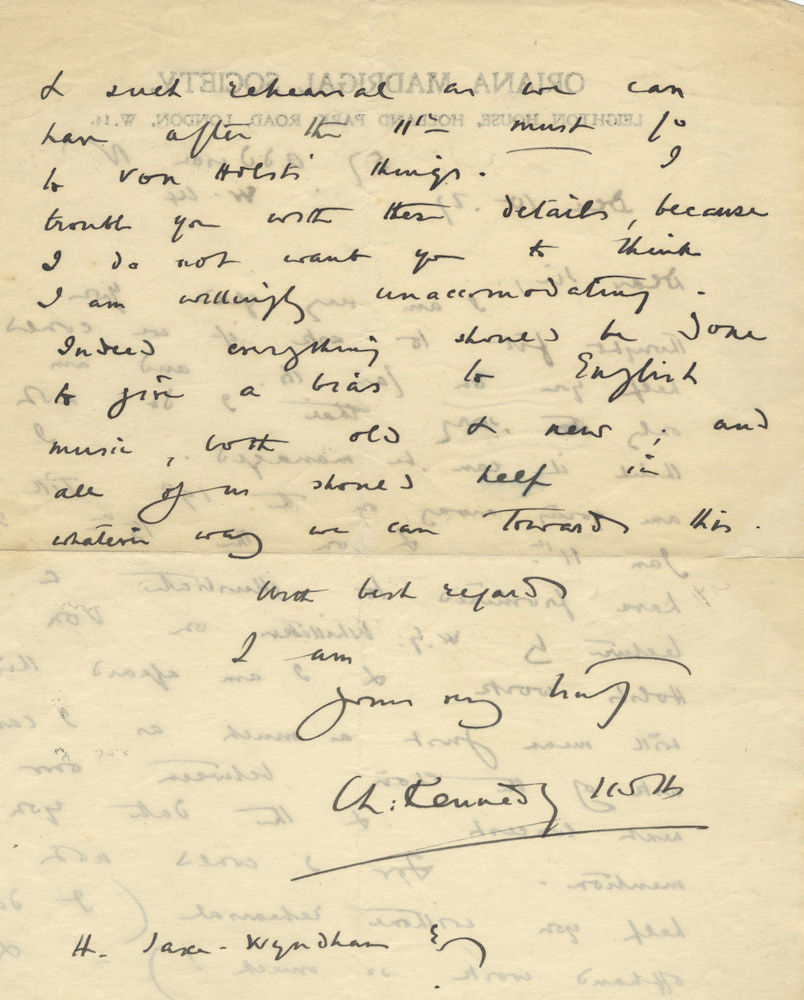 & such rehearsal as we can
have after the 11th must go
to von Holst's things. I
trouble you with these details, because
I do not want you to think
I am willingly unaccomodating.
Indeed everything should be done
to give a bias to English
music, both old & new; and
all of us should help in
whatever way we can towards this.
With best regards
I am
yours very truly
Ch: Kennedy Scott
H. Saxe-Wyndham Esq